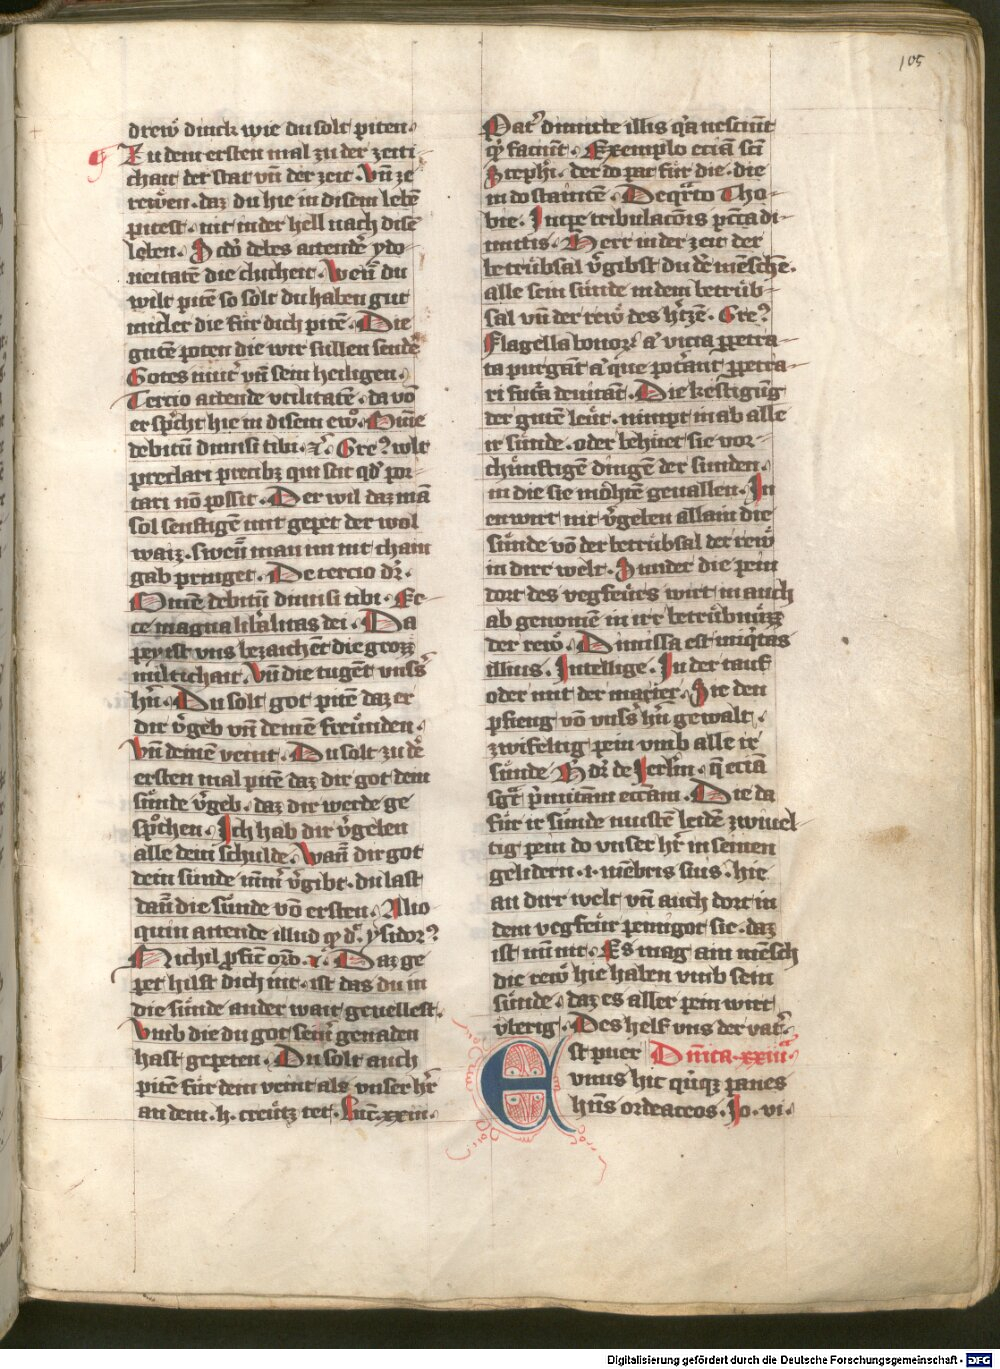 105
drew dinck wie du solt piten·
Zu dem ersten mal zu der zeiti
chait der stat vn̄ der zeit· Vn̄ ze
rewen· daz du hie in disem lebē
pitest· nit in der hell nach disē
leben· Scdo debes attendē ydo
neitatē die chucheit· Wen̄ du
wilt pitē so solt du haben gut
mitler die für dich pitē· Die
gutē poten die wir süllen sendē
Gotes mut͛ vn̄ sein heiligen·
Tercio attende vtilitatē· da vō
er sp͛cht hie in disem ewo· Om̄e
debitū dimisi tibi· rͨ· Gre? wlt
preclari precibz qui scit qd͛ por
tari nō possit· Der wil daz mā
sol senftigē mit gepet der wol
waiz· swen̄ man im nit chain
gab pringet· De tercio dr̄·
Om̄e debitū dimisi tibi· Ec
ce magna lib͛alitas dei· Da
pey ist vns bezaichēt die grozz
miltichait· Vn̄ die tugēt vnsͤs
hn̄· Du solt got pitē daz er
dir v͛geb vn̄ deinē freunden·
vn̄ deinē veint· Du solt zu dē
ersten mal pitē daz dir got dein
sünde v͛geb· daz dir werde ge
sp͛ochen· Ich hab dir v͛geben
alle dein schulde· Wan̄ dir got
dein sünde nīm͛ v͛gibt· du last
dan̄ die sünde vō ersten· Alio
quin attende illud qd d͛· ysidor?
Nichil p͛fic̄ orō· rͨ· Daz ge
pet hilft dich nit· ist das du in
die sünde ander wait geuellest·
Vmb die du got sein͛ genaden
hast gepeten· Du solt auch
pitē für dein veint als vnser hr̄
an dem· h· creutz tet· Luc̄· xxiii·
Pat͛ dimitte illis q͛a nesciūt
qd faciūt· Exemplo eciā sci
Stephi· der do pat für die· die
in do stainttē· De q͛rto Tho-
bie· In tpe tribulacōis pcc̄a di-
mittis· Herr in der zeit der
betrübsal v͛gibst du dē mēschē·
alle sein sünde in dem betrüb-
sal vn̄ der rew des h͛tzē· Gre?
Flagella bonoꝝ a͛ vicia ꝑpetra-
ta purgāt a͛ que pot͛ant ꝑpetra-
ri fut͛a deuitāt· Die kestigūg
der gutē leut· nimpt in ab alle
ir sünde· oder behüet sie vor-
chünftigē dingē der sünden·
in die sie möhtē geuallen· In
en wirt nit v͛geben allain die
sünde vō der betrübsal der rew
in dirr welt· Sunder die pein
dort des vegfeurs wirt in auch
ab genomē in irr betrübnüzz
der rew· Dimissa est iniq͛tas
illius· Intellige· In der tauf
oder mit der marter· Sie den
pfieng vō vnsͤs hn̄ gewalt·
zwifeltig pein vmb alle ir
sünde· H͛ dr̄ de Ierlm̄· q̄ eciā
sg͛t p͛mitiam ecc̄am· Die da
für ir sünde mustē leidē zwiuel-
tig pein do vnser hr̄ in seinen
gelidern· i· mēbris suis· hie
an dirr welt vn̄ auch dort in
dem vegfeur peinigot sie· daz
ist nun nit· Es mag ain mēsch
die rew hie haben vmb sein
sünde· daz es aller pein wirt
vberig· Des helf vns der vat͛·
Est puer Dn̄ica· xxiiii͛ᵃ
vnus hic q̄nqz panes
hn̄s ordeaceos· Jo· vi·
Digitalisierung gefördert durch die Deutsche Forschungsgemeinschaft - DFG